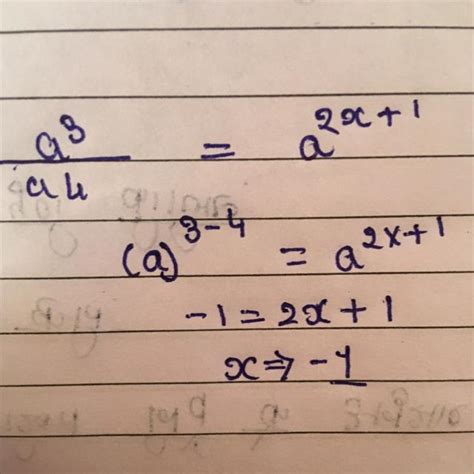 a³/a4 = a^{2x+1}
(a)^{3-4} = a^{2x+1}
-1 = 2x+1
x ⇒ -1